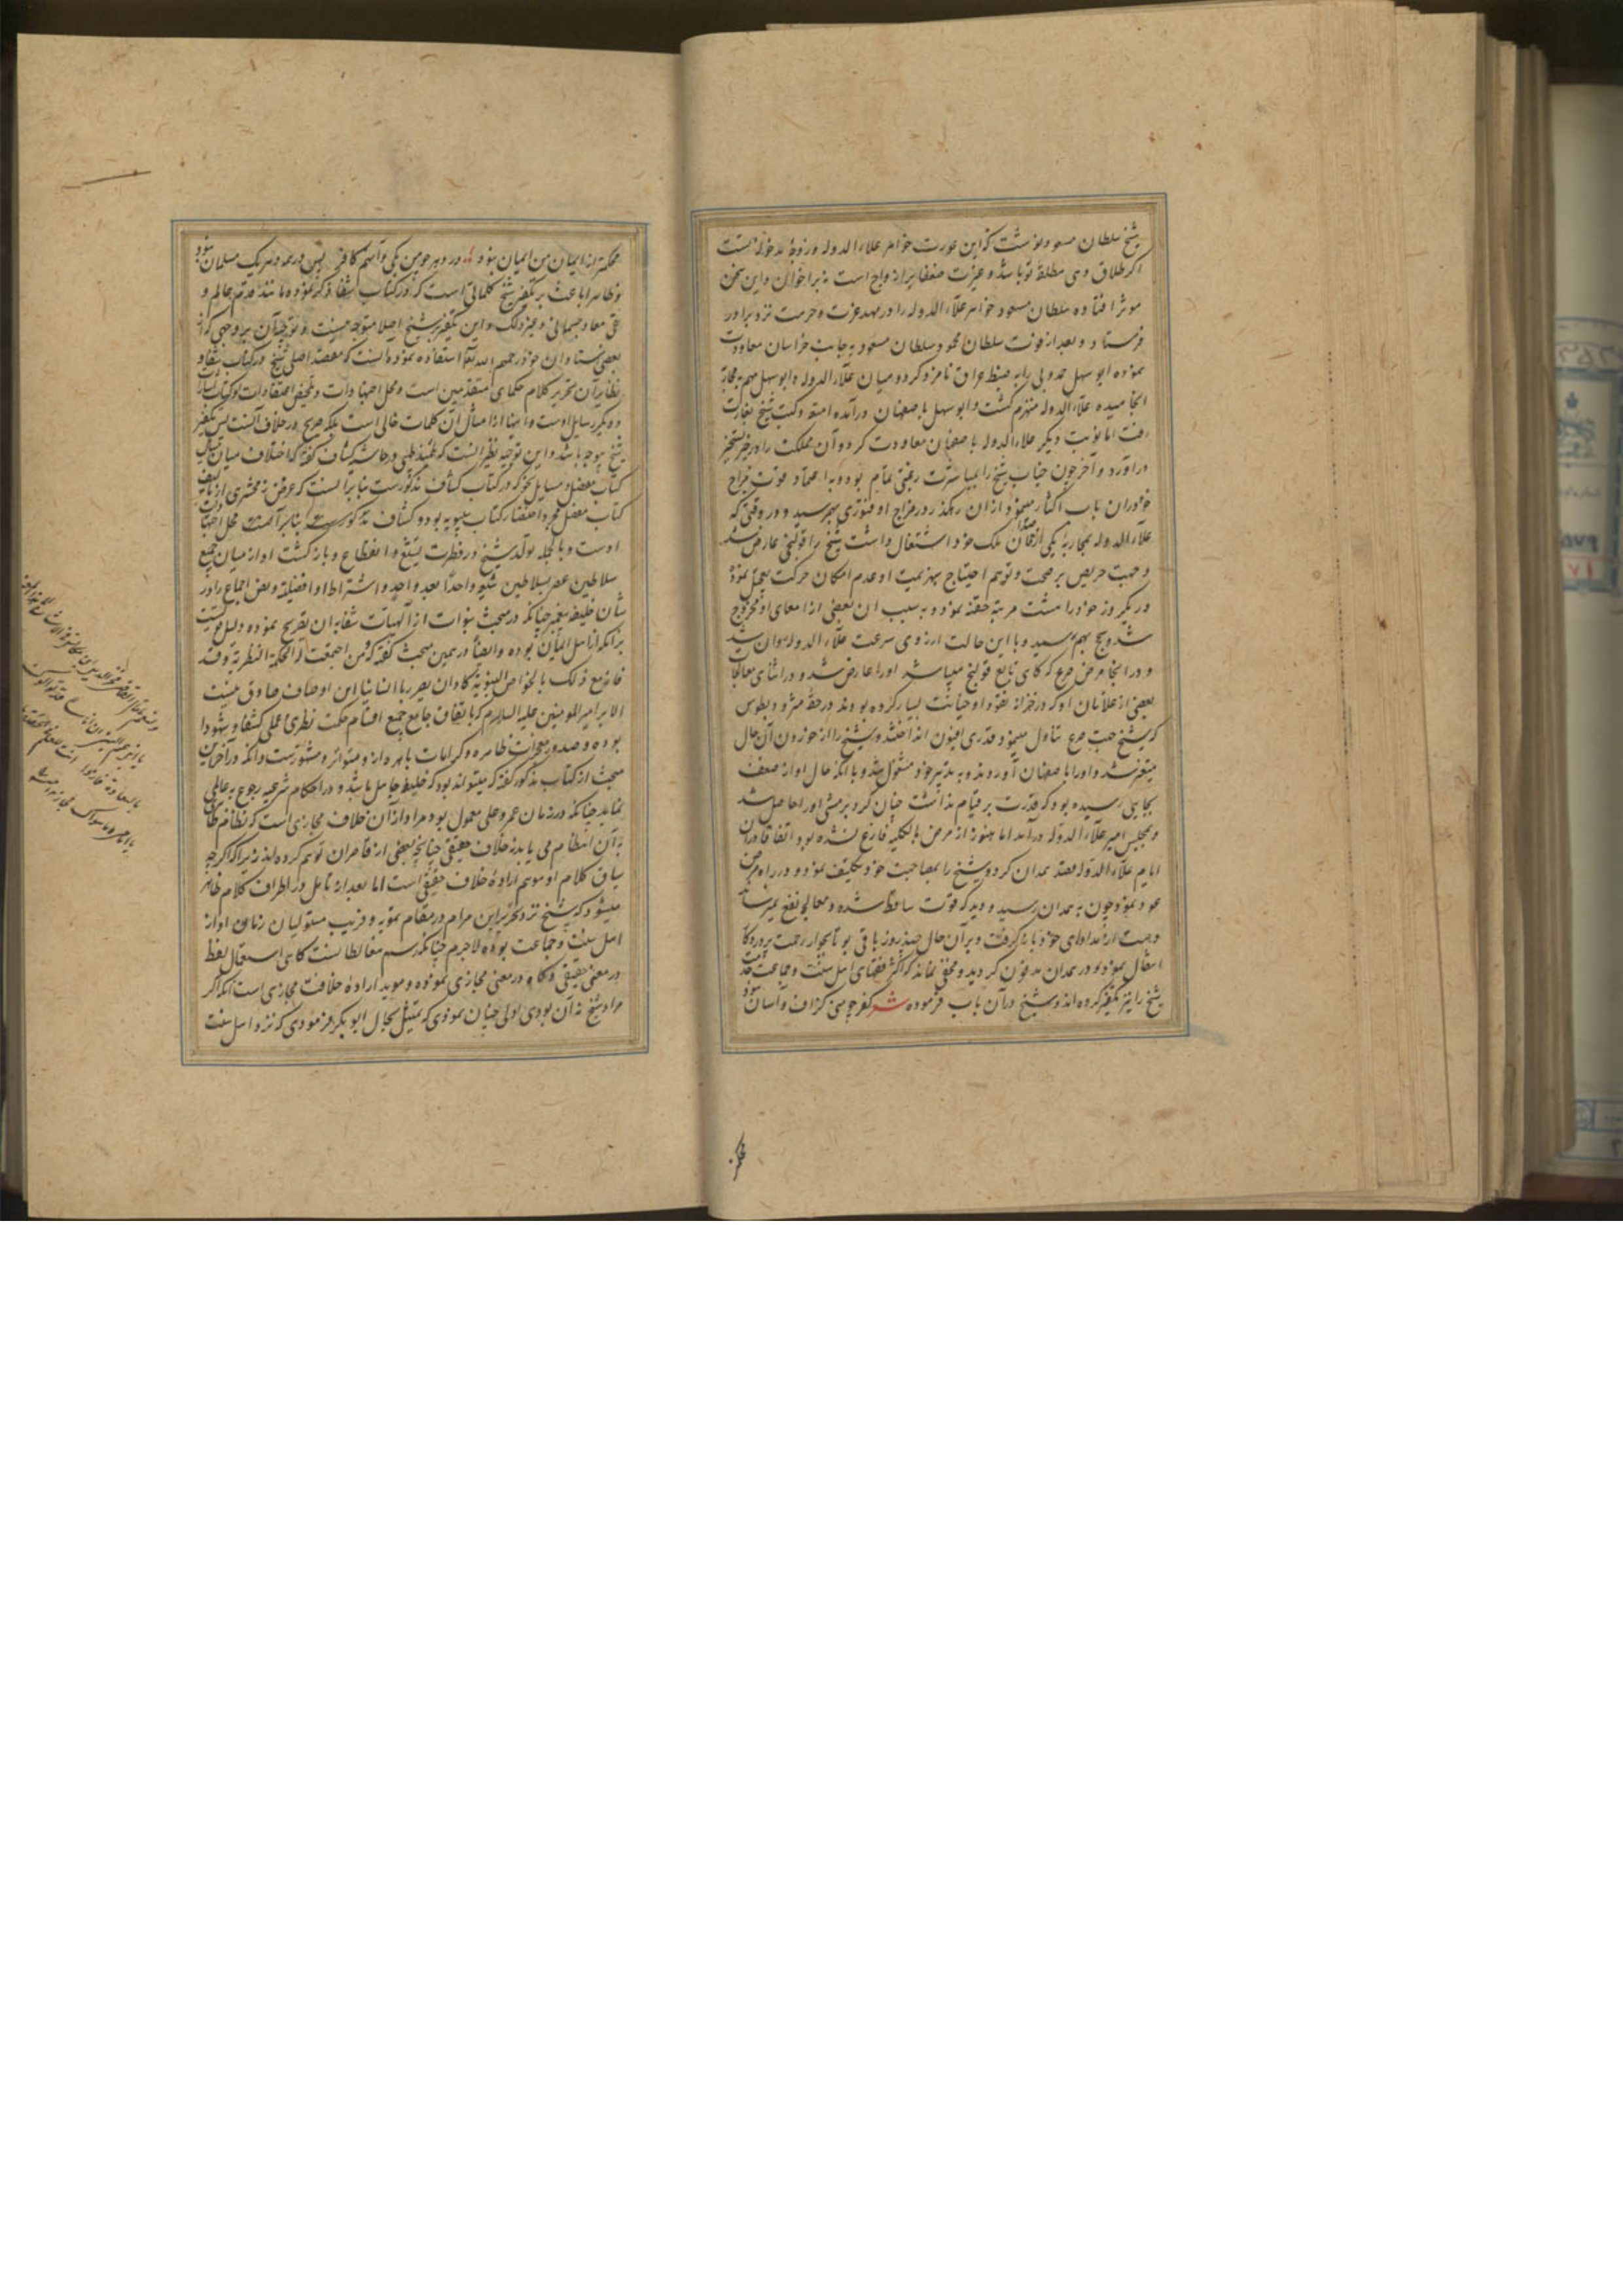 شیخ سلطان مسعود نوشت که این عورت خواهر علاء الدوله و زوجهٔ مدخولهٔ تست
اگر طلاق دهی مطلقهٔ تو باشد و غیرت ضعفا بر ازواج است نه بر اخوان و این سخن
موثر افتاده سلطان مسعود خواهر علاء الدوله را در مهد عزت و حرمت نزد برادر
فرستاد و بعد از فوت سلطان محمود سلطان مسعود به جانب خراسان معاودت
نموده ابو سهل حمدونی را به ضبط عراق نامزد کرد و میان علاء الدوله و ابو سهل مهم بمحاربه
انجامیده علاء الدوله منهزم گشت و ابو سهل باصفهان درآمده امتعه و کتب شیخ بغارت
رفت اما نوبت دیگر علاء الدوله باصفهان معاودت کرد و آن مملکت را در حیز تسخیر
درآورد و آخر چون جناب شیخ را بمباشرت رغبتی تمام بود و به اعتماد قوت مزاج
خود در آن باب اکثار مینمود از آن رهگذر در مزاج او فتوری بهم رسید و در وقتی که
علاء الدوله بمحاربهٔ یکی از خصمان ملک خود اشتغال داشت شیخ را قولنجی عارض شد
و جهت حرص بر صحت و توهم احتیاج بهزیمت و عدم امکان حرکت تعجیل نموده
در یکروز خود را هشت مرتبه حقنه نمود و به سبب آن بعضی از امعای او مجروح
شد و سحج بهم رسید و با این حالت از روی سرعت علاء الدوله روان شد
و در انجا مرض صرع که گاهی تابع قولنج میباشد او را عارض شد و در اثنای معالجات
بعضی از غلامان او که در خزانه نقود او خیانت بسیار کرده بودند در حقهٔ مثرودیطوس
که شیخ جهت صرع تناول مینمود قدری افیون انداختند و شیخ را از خوردن آن حال
متغیر شد و او را باصفهان آوردند و به تدبیر خود مشغول شد و با آنکه حال او از ضعف
بجایی رسیده بود که قدرت بر قیام نداشت چنان کرد که بر مشی او را حاصل شد
و بمجلس امیر علاء الدوله درآمد اما هنوز از مرض بالکلیه فارغ نشده بود اتفاقا در آن
ایام علاء الدوله قصد همدان کرد و شیخ را بمصاحبت خود تکلیف نمود و در راه مرض
عود نمود چون به همدان رسید و دید که قوت ساقط شده و معالجه نفع نمیرساند
دست از مداوای خود بازگرفت و بر آن حال چند روز باقی بود تا بجوار رحمت پروردگار
انتقال نمود و در همدان مدفون گردید و مخفی نماند که اکثر فقهای اهل سنت و جماعت
شیخ را نیز تکفیر کرده اند و شیخ در آن باب فرموده شعر کفر چو منی گزاف و آسان نبود
محکمتر از ایمان من ایمان نبود در دهر چو من یکی و آنهم کافر پس در همه دهر یک مسلمان نبود
و ظاهرا باعث بر تکفیر شیخ کلماتی است که در کتاب شفا ذکر نموده مانند قدم عالم و
نفی معاد جسمانی و غیر ذلک و این تکفیر بشیخ اصلا متوجه نیست و توجیه آن بر وجهی که از
بعضی استادان خود رحمهم الله تعالی استفاده نموده آنست که مقصد اصلی شیخ در کتاب شفا و
نظایر آن تحریر کلام حکمای متقدمین است و محل اجتهادات و تلخیص اعتقادات او کتاب اشارات
و دیگر رسایل اوست و اینها از امثال آن کلمات خالی است بلکه صریح در خلاف آنست پس تکفیر
شیخ موجه نباشد و این توجیه نظیر آنست که علامه طیبی در حاشیه کشاف گفته که اختلاف میان مسایل
کتاب مفصل و مسایل نحو که در کتاب کشاف مذکورست بنا بر آنست که غرض زمخشری از تالیف
کتاب مفصل مجرد اختصار کتاب سیبویه بود و کشاف مذکورست بنا بر آنست محل اجتهادات
اوست و بالجمله تولد شیخ در فطرت تشیع و انقطاع و بازگشت او از میان جمیع
سلاطین عصر بسلاطین شیعه واحدا بعد واحد و اشتراط او افضلیة و نص اجماع را در
شان خلیفه پیغمبر چنانکه در مبحث نبوات از الهیات شفا به آن تصریح نموده دلیل قویست
بر آنکه از اهل ایمان بوده و ایضا در همین مبحث گفته که و من اجتمعت له الحکمة النظریة و قد
فاز مع ذلک بالخواص النبویة کاد ان یصیر ربا انسانیا این اوصاف صادق نیست
الا بر امیر المومنین علیه السلام که باتفاق جامع جمیع اقسام حکمت نظری و عملی کشفا و شهودا
بوده و صدور معجزات ظاهره و کرامات باهره از و متواتر و مشهورست و آنکه در آخر این
مبحث از کتاب مذکور گفته که میتواند بود که خلیفه جاهل باشد و در احکام شرعیه رجوع به عالمی
نماید چنانکه در زمان عمر و علی معمول بود مراد از آن خلاف مجازی است که نظام ظاهر
به آن انتظام می یابد نه خلاف حقیقی چنانچه بعضی از قاصران توهم کرده اند زیرا که اگر چه
سیاق کلام او موهم ارادهٔ خلاف حقیقی است اما بعد از تامل در اطراف کلام ظاهر
میشود که شیخ نزد تحریر این مرام در مقام تمویه و فریب مستولیان زمان او از
اهل سنت و جماعت بوده لاجرم چنانکه رسم مغالطانست گاهی استعمال لفظ
در معنی حقیقی و گاه در معنی مجازی نموده و موید ارادهٔ خلافت مجازی است آنکه اگر
مراد شیخ نه آن بودی اولی چنان نمودی که تمثیل بحال ابو بکر فرمودی که نزد اهل سنت